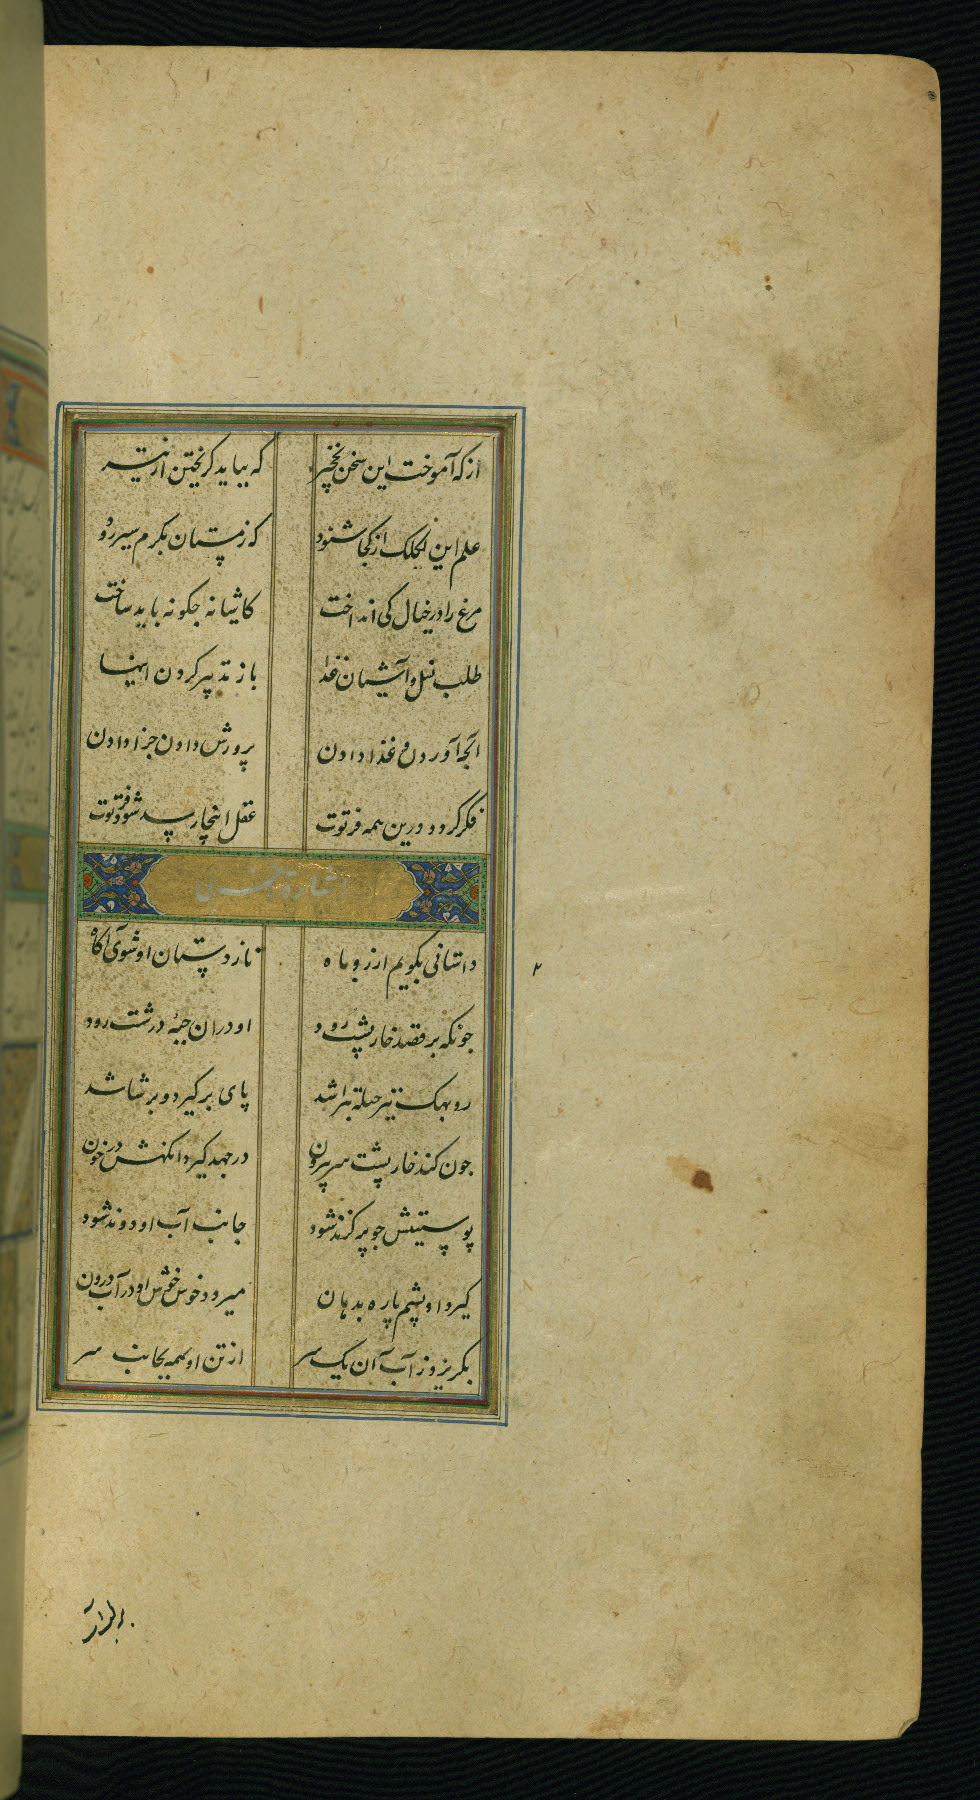 از که آموخت این سخن نخچیر که بباید گریختن از تیر
علم این لکلک از کجا شنود که زمستان بگرم سیر رود
مرغ را در خیال کی انداخت کاشیانه چگونه باید ساخت
طلب نسل و آشیان و غذا باز تدبیر کردن اینها
آنچه آوردن و غذا دادن پرورش دادن جزا دادن
فکر گردد درین همه فرتوت عقل اینجا رسد شود فرتوت
اشارة اخری
داستانی بگویم از روباه تا ز دستان او شوی آگاه
چونکه بر قصد خارپشت رود او در آن جبهٔ درشت رود
روبهک تیز حیله بتراشد پای برگیرد و برشاشد
چون کند خارپشت سر بیرون در جهد گیرد افکندش در خون
پوستینش چو پر گزنده شود جانب آب او دونده شود
گیرد او پشم پاره بدهان میرود خوش خوش او در آب درون
بگریزد ز آب آن یک سر از تن او همه بجانب سر